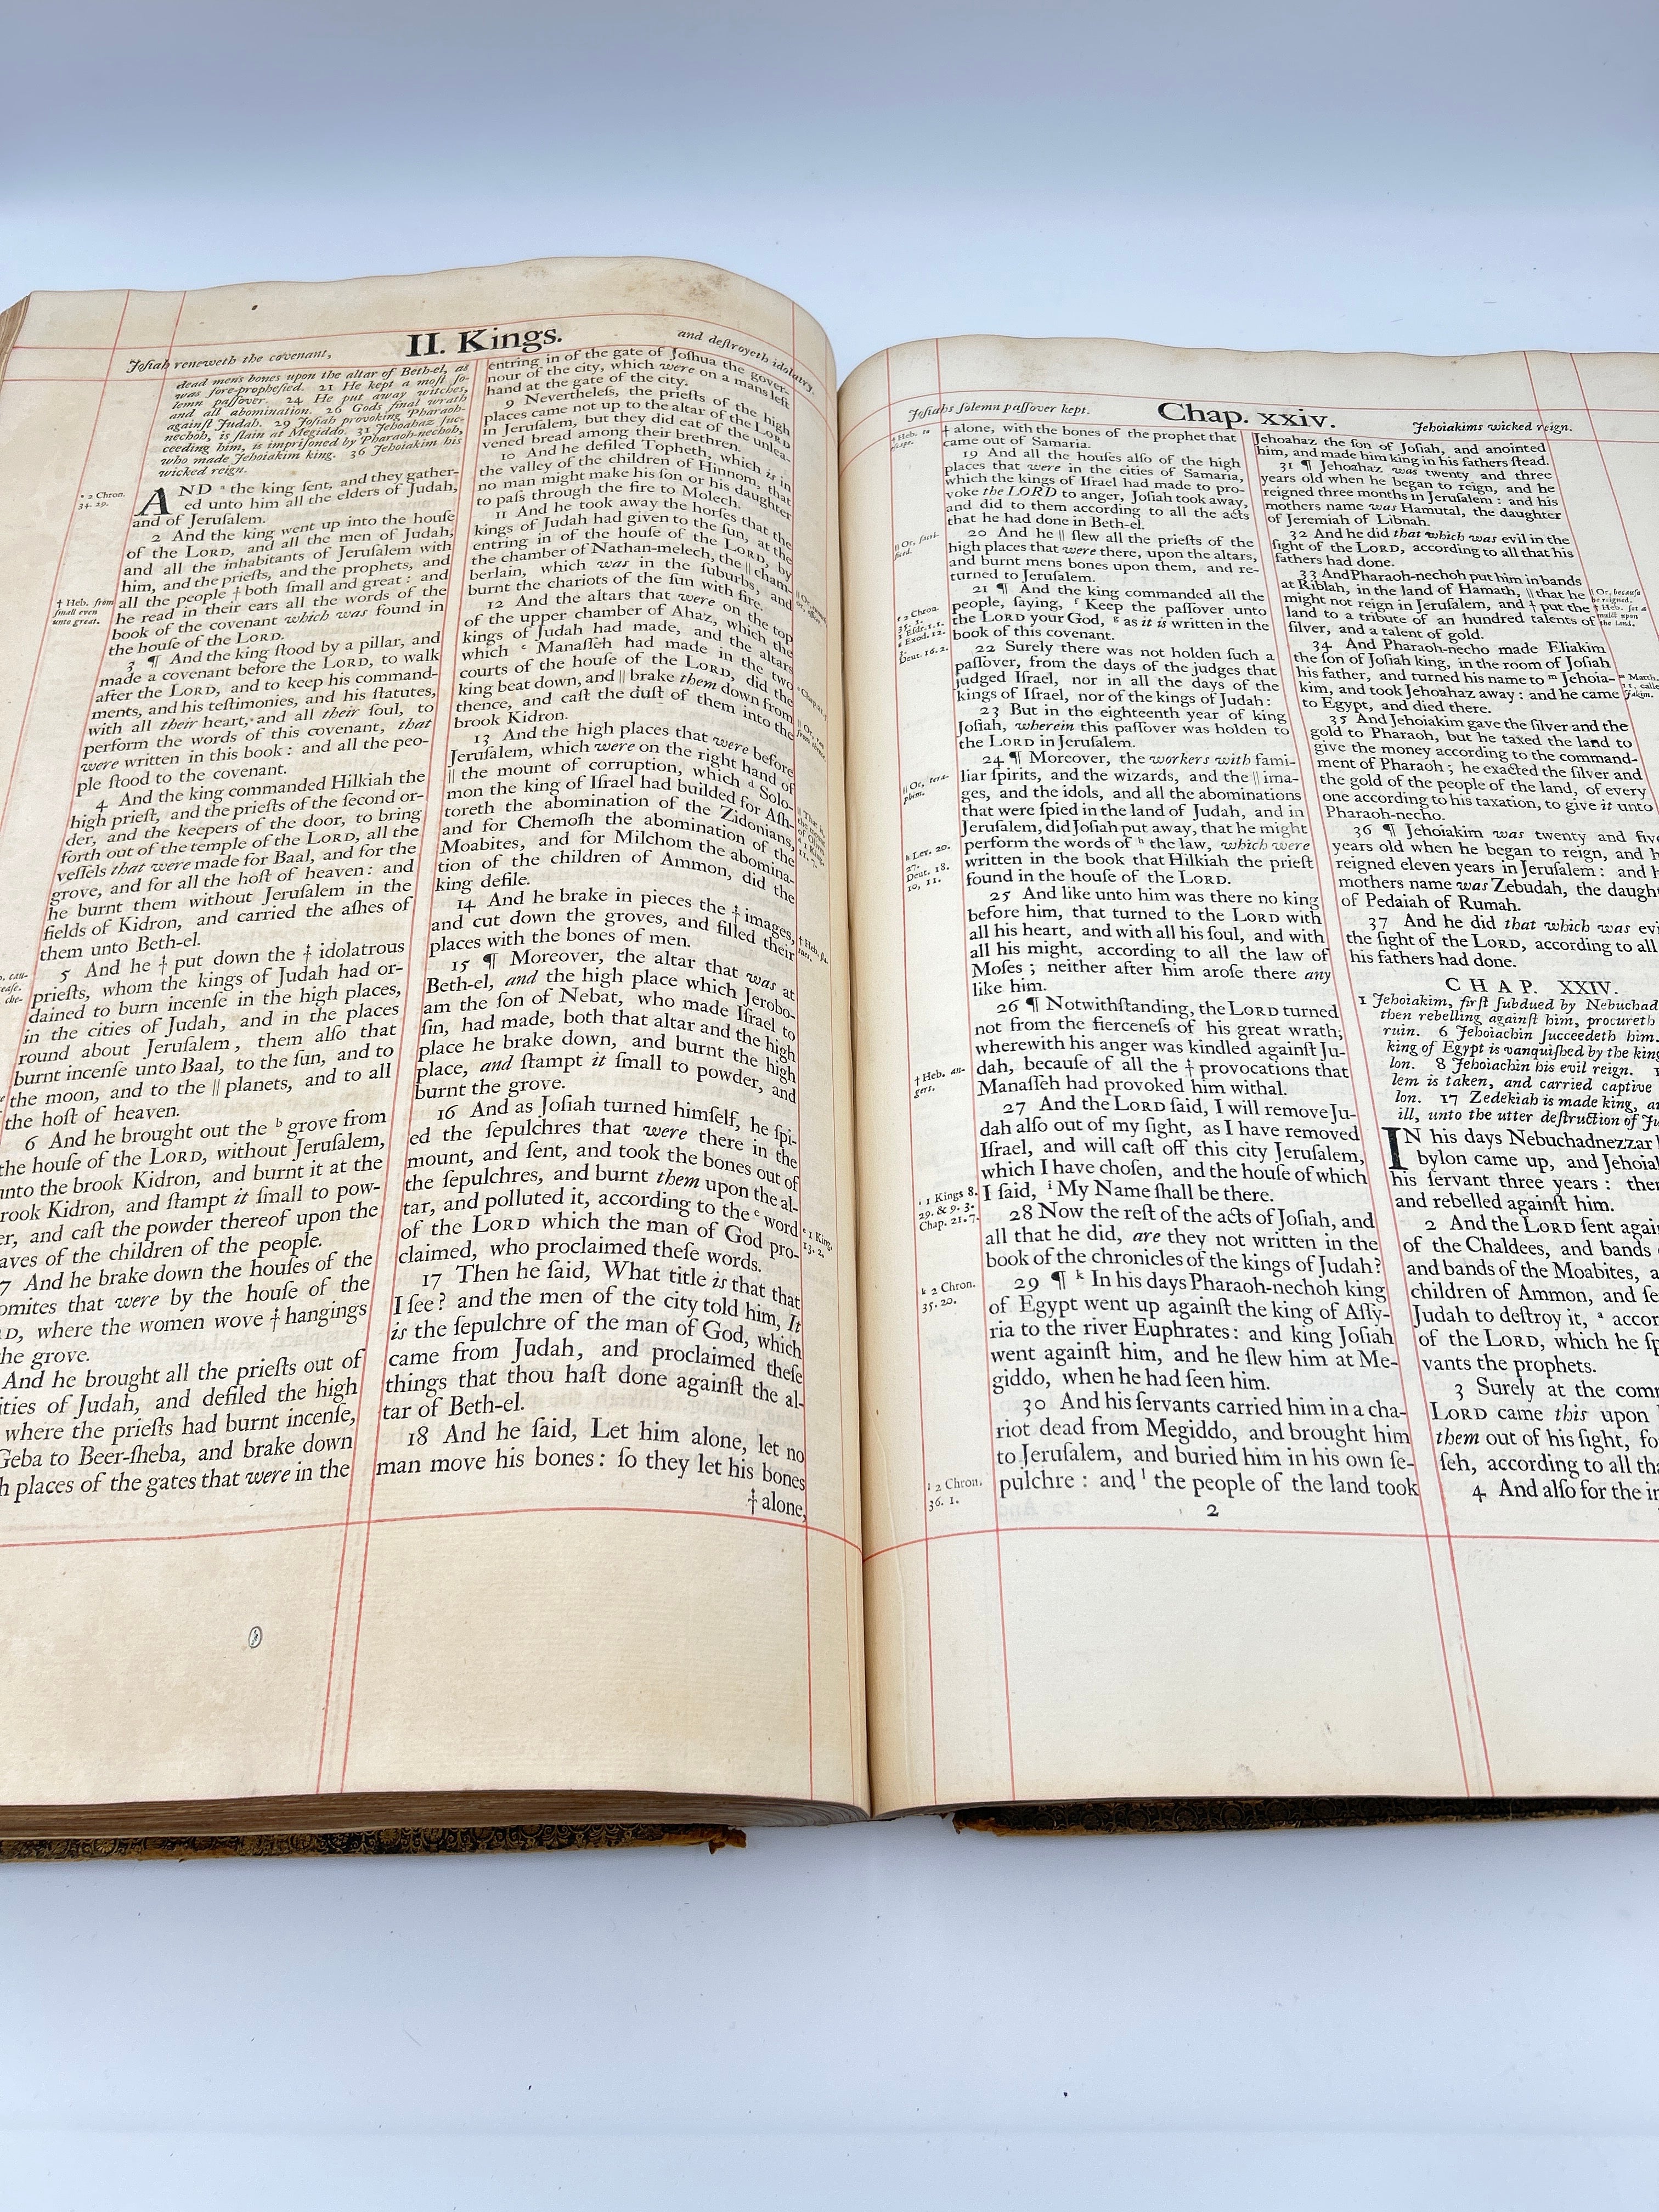 Joſiah reneweth the covenant,
II. Kings.
and deſtroyeth idolatry.
dead mens bones upon the altar of Beth-el, as
was fore-propheſied. 21 He kept a moſt ſo-
lemn paſſover. 24 He put away witches,
and all abomination. 26 Gods final wrath
againſt Judah. 29 Joſiah provoking Pharaoh-
nechoh, is ſlain at Megiddo. 31 Jehoahaz ſuc-
ceeding him, is impriſoned by Pharaoh-nechoh,
who made Jehoiakim king. 36 Jehoiakim his
wicked reign.
AND ᵃ the king ſent, and they gather-
ed unto him all the elders of Judah,
and of Jeruſalem.
2 And the king went up into the houſe
of the LORD, and all the men of Judah,
and all the inhabitants of Jeruſalem with
him, and the prieſts, and the prophets, and
all the people † both ſmall and great: and
he read in their ears all the words of the
book of the covenant which was found in
the houſe of the LORD.
3 ¶ And the king ſtood by a pillar, and
made a covenant before the LORD, to walk
after the LORD, and to keep his command-
ments, and his teſtimonies, and his ſtatutes,
with all their heart, and all their ſoul, to
perform the words of this covenant, that
were written in this book: and all the peo-
ple ſtood to the covenant.
4 And the king commanded Hilkiah the
high prieſt, and the prieſts of the ſecond or-
der, and the keepers of the door, to bring
forth out of the temple of the LORD, all the
veſſels that were made for Baal, and for the
grove, and for all the hoſt of heaven: and
he burnt them without Jeruſalem in the
fields of Kidron, and carried the aſhes of
them unto Beth-el.
5 And he † put down the † idolatrous
prieſts, whom the kings of Judah had or-
dained to burn incenſe in the high places,
in the cities of Judah, and in the places
round about Jeruſalem, them alſo that
burnt incenſe unto Baal, to the ſun, and to
the moon, and to the || planets, and to all
the hoſt of heaven.
6 And he brought out the ᵇ grove from
the houſe of the LORD, without Jeruſalem,
unto the brook Kidron, and burnt it at the
rook Kidron, and ſtampt it ſmall to pow-
er, and caſt the powder thereof upon the
aves of the children of the people.
7 And he brake down the houſes of the
omites that were by the houſe of the
RD, where the women wove † hangings
he grove.
And he brought all the prieſts out of
ities of Judah, and defiled the high
where the prieſts had burnt incenſe,
Geba to Beer-ſheba, and brake down
h places of the gates that were in the
* 2 Chron.
34. 29.
† Heb. from
ſmall even
unto great.
entring in of the gate of Joſhua the gover-
nour of the city, which were on a mans left
hand at the gate of the city.
9 Nevertheleſs, the prieſts of the high
places came not up to the altar of the LORD
in Jeruſalem, but they did eat of the unlea-
vened bread among their brethren.
10 And he defiled Topheth, which is in
the valley of the children of Hinnom, that
no man might make his ſon or his daughter
to paſs through the fire to Molech.
11 And he took away the horſes that the
kings of Judah had given to the ſun, at the
entring in of the houſe of the LORD, by
the chamber of Nathan-melech, the || cham-
berlain, which was in the ſuburbs, and
burnt the chariots of the ſun with fire.
12 And the altars that were on the top
of the upper chamber of Ahaz, which the
kings of Judah had made, and the altars
which ᶜ Manaſſeh had made in the two
courts of the houſe of the LORD, did the
king beat down, and || brake them down from
thence, and caſt the duſt of them into the
brook Kidron.
13 And the high places that were before
Jeruſalem, which were on the right hand of
|| the mount of corruption, which ᵈ Solo-
mon the king of Iſrael had builded for Aſh-
toreth the abomination of the Zidonians,
and for Chemoſh the abomination of the
Moabites, and for Milchom the abomina-
tion of the children of Ammon, did the
king defile.
14 And he brake in pieces the † images,
and cut down the groves, and filled their
places with the bones of men.
15 ¶ Moreover, the altar that was at
Beth-el, and the high place which Jerobo-
am the ſon of Nebat, who made Iſrael to
ſin, had made, both that altar and the high
place he brake down, and burnt the high
place, and ſtampt it ſmall to powder, and
burnt the grove.
16 And as Joſiah turned himſelf, he ſpi-
ed the ſepulchres that were there in the
mount, and ſent, and took the bones out of
the ſepulchres, and burnt them upon the al-
tar, and polluted it, according to the ᵉ word
of the LORD which the man of God pro-
claimed, who proclaimed theſe words.
17 Then he ſaid, What title is that that
I ſee? and the men of the city told him, It
is the ſepulchre of the man of God, which
came from Judah, and proclaimed theſe
things that thou haſt done againſt the al-
tar of Beth-el.
18 And he ſaid, Let him alone, let no
man move his bones: ſo they let his bones
† alone,
ᵉ 1 King.
13. 2.
Joſiahs ſolemn paſſover kept.
Chap. xxiv.
Jehoiakims wicked reign.
† alone, with the bones of the prophet that
came out of Samaria.
19 And all the houſes alſo of the high
places that were in the cities of Samaria,
which the kings of Iſrael had made to pro-
voke the LORD to anger, Joſiah took away,
and did to them according to all the acts
that he had done in Beth-el.
20 And he || ſlew all the prieſts of the
high places that were there, upon the altars,
and burnt mens bones upon them, and re-
turned to Jeruſalem.
21 ¶ And the king commanded all the
people, ſaying, ᶠ Keep the paſſover unto
the LORD your God, ᵍ as it is written in the
book of this covenant.
22 Surely there was not holden ſuch a
paſſover, from the days of the judges that
judged Iſrael, nor in all the days of the
kings of Iſrael, nor of the kings of Judah:
23 But in the eighteenth year of king
Joſiah, wherein this paſſover was holden to
the LORD in Jeruſalem.
24 ¶ Moreover, the workers with fami-
liar ſpirits, and the wizards, and the || ima-
ges, and the idols, and all the abominations
that were ſpied in the land of Judah, and in
Jeruſalem, did Joſiah put away, that he might
perform the words of ʰ the law, which were
written in the book that Hilkiah the prieſt
found in the houſe of the LORD.
25 And like unto him was there no king
before him, that turned to the LORD with
all his heart, and with all his ſoul, and with
all his might, according to all the law of
Moſes; neither after him aroſe there any
like him.
26 ¶ Notwithſtanding, the LORD turned
not from the fierceneſs of his great wrath,
wherewith his anger was kindled againſt Ju-
dah, becauſe of all the † provocations that
Manaſſeh had provoked him withal.
27 And the LORD ſaid, I will remove Ju-
dah alſo out of my ſight, as I have removed
Iſrael, and will caſt off this city Jeruſalem,
which I have choſen, and the houſe of which
I ſaid, ⁱ My Name ſhall be there.
28 Now the reſt of the acts of Joſiah, and
all that he did, are they not written in the
book of the chronicles of the kings of Judah?
29 ¶ ᵏ In his days Pharaoh-nechoh king
of Egypt went up againſt the king of Aſſy-
ria to the river Euphrates: and king Joſiah
went againſt him, and he ſlew him at Me-
giddo, when he had ſeen him.
30 And his ſervants carried him in a cha-
riot dead from Megiddo, and brought him
to Jeruſalem, and buried him in his own ſe-
pulchre: and ˡ the people of the land took
2
|| Or, tera-
phim.
ʰ Lev. 20.
27.
Deut. 18.
10, 11.
† Heb. an-
gers.
ⁱ 1 Kings 8.
29. & 9. 3.
Chap. 21. 7.
ᵏ 2 Chron.
35. 20.
ˡ 2 Chron.
36. 1.
Jehoahaz the ſon of Joſiah, and anointed
him, and made him king in his fathers ſtead.
31 ¶ Jehoahaz was twenty and three
years old when he began to reign, and he
reigned three months in Jeruſalem: and his
mothers name was Hamutal, the daughter
of Jeremiah of Libnah.
32 And he did that which was evil in the
ſight of the LORD, according to all that his
fathers had done.
33 And Pharaoh-nechoh put him in bands
at Riblah, in the land of Hamath, || that he
might not reign in Jeruſalem, and † put the
land to a tribute of an hundred talents of
ſilver, and a talent of gold.
34 And Pharaoh-necho made Eliakim
the ſon of Joſiah king, in the room of Joſiah
his father, and turned his name to ᵐ Jehoia-
kim, and took Jehoahaz away: and he came
to Egypt, and died there.
35 And Jehoiakim gave the ſilver and the
gold to Pharaoh, but he taxed the land to
give the money according to the command-
ment of Pharaoh; he exacted the ſilver and
the gold of the people of the land, of every
one according to his taxation, to give it unto
Pharaoh-necho.
36 ¶ Jehoiakim was twenty and five
years old when he began to reign, and h
reigned eleven years in Jeruſalem: and h
mothers name was Zebudah, the daugh
of Pedaiah of Rumah.
37 And he did that which was evi
the ſight of the LORD, according to all
his fathers had done.
CHAP. XXIV.
1 Jehoiakim, firſt ſubdued by Nebuchad
then rebelling againſt him, procureth
ruin. 6 Jehoiachin ſucceedeth him.
king of Egypt is vanquiſhed by the king
lon. 8 Jehoiachin his evil reign.
lem is taken, and carried captive
lon. 17 Zedekiah is made king, an
ill, unto the utter deſtruction of Ju
IN his days Nebuchadnezzar
bylon came up, and Jehoia
his ſervant three years: then
and rebelled againſt him.
2 And the LORD ſent again
of the Chaldees, and bands
and bands of the Moabites, a
children of Ammon, and ſe
Judah to deſtroy it, ᵃ accor
of the LORD, which he ſp
vants the prophets.
3 Surely at the com
LORD came this upon
them out of his ſight, fo
ſeh, according to all tha
4 And alſo for the in
|| Or, becauſe
he reigned.
† Heb. ſet a
mulct upon
the land.